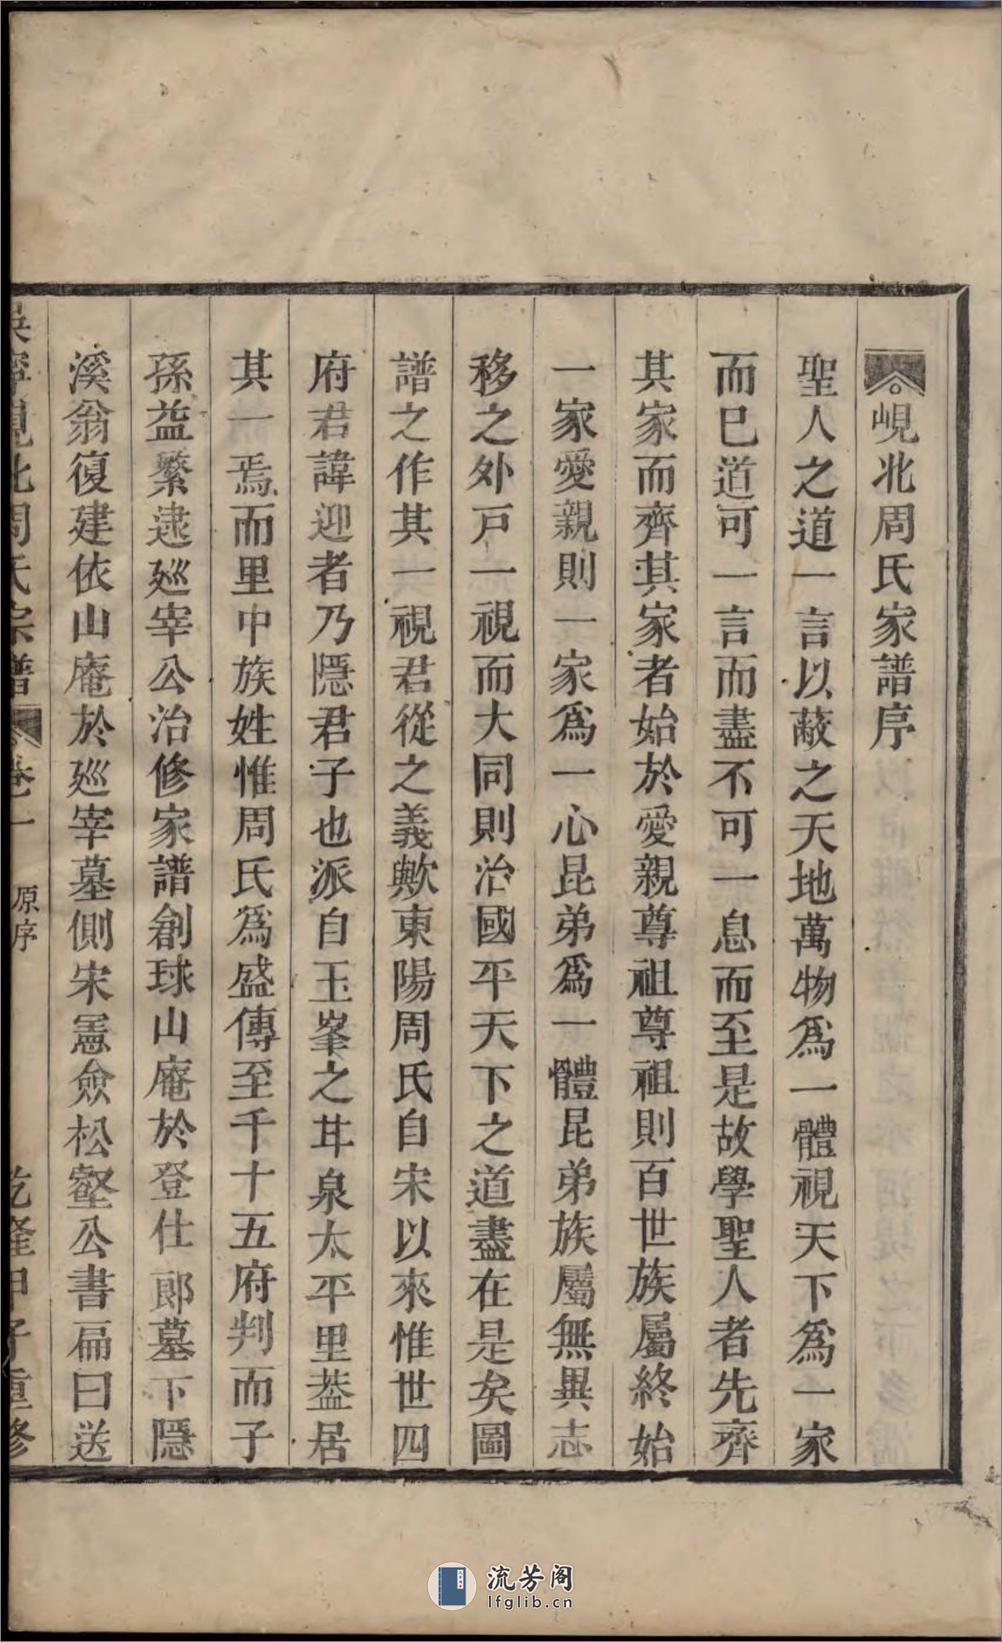 峴北周氏家譜序
聖人之道一言以蔽之天地萬物爲一體視天下爲一家
而巳道可一言而盡不可一息而至是故學聖人者先齊
其家而齊其家者始於愛親尊祖尊祖則百世族屬終始
一家愛親則一家爲一心昆弟爲一體昆弟族屬無異志
移之外戸一視而大同則治國平天下之道盡在是矣圖
譜之作其一視君從之義歟東陽周氏自宋以來惟世四
府君諱迎者乃隱君子也派自玉峯之井泉太平里葢居
其一焉而里中族姓惟周氏爲盛傳至千十五府判而子
孫益繁逮廵宰公治修家譜創球山庵於登仕郞墓下隱
溪翁復建依山庵於廵宰墓側宋憲僉松壑公書扁曰送
吳寧峴北周氏宗譜 卷一 原序 乾隆甲子重修
流芳阁
lfglib.cn